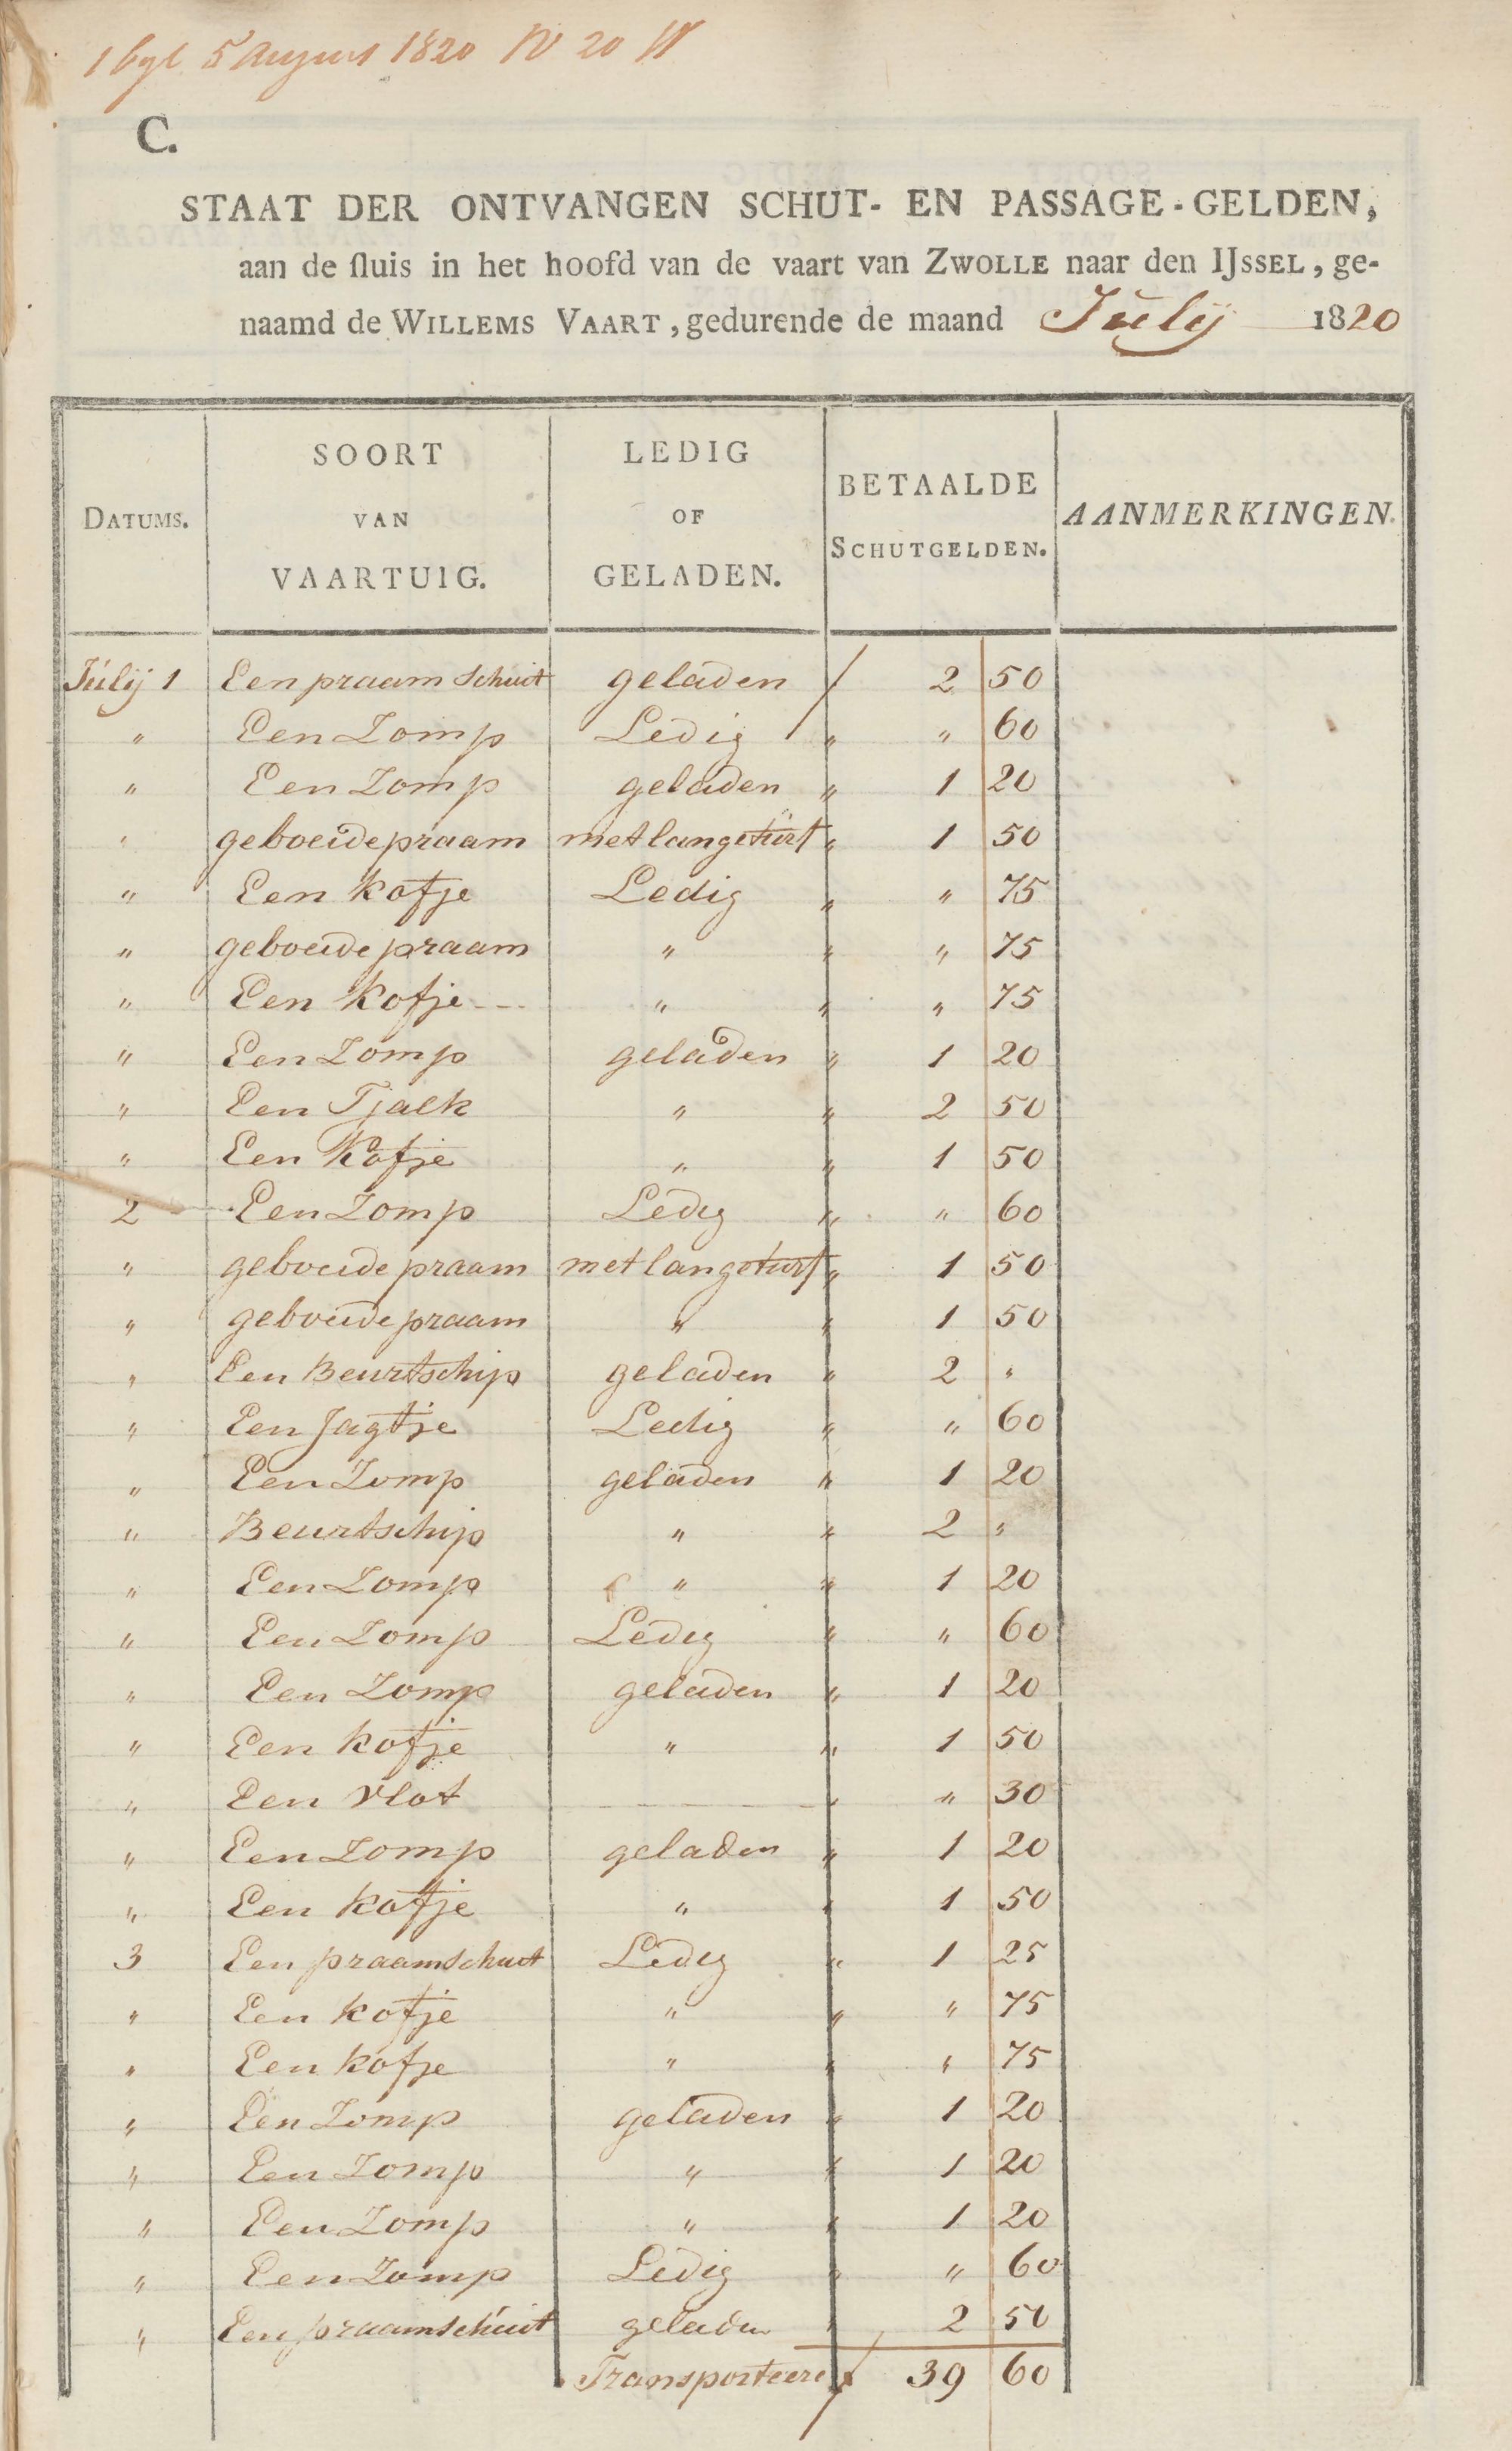 5 August 1820 N 20
C.
STAAT DER ONTVANGEN SCHUT- EN PASSAGE-GELDEN,
aan de sluis in het hoofd van de vaart van ZWOLLE naar den IJSSEL, ge-
naamd de WILLEMS VAART, gedurende de maand Julij 1820
DATUMS. SOORT VAN VAARTUIG. LEDIG OF GELADEN. BETAALDE SCHUTGELDEN. AANMERKINGEN.
Julij 1 Een praam schuit geladen ƒ 2 50
" Een Zomp Ledig " " 60
" Een Zomp geladen " 1 20
" geboeide praam met lange turf " 1 50
" Een kofje Ledig " " 75
" geboeide praam " " " 75
" Een kofje " " " 75
" Een Zomp geladen " 1 20
" Een Tjalk " " 2 50
" Een Kofje " " 1 50
2 Een Zomp Ledig " " 60
" geboeide praam met lange turf " 1 50
" geboeide praam " " 1 50
" Een Beurtschip geladen " 2 "
" Een Jagtje Ledig " " 60
" Een Zomp geladen " 1 20
" Beurtschip " " 2 "
" Een Zomp " " 1 20
" Een Zomp Ledig " " 60
" Een Zomp geladen " 1 20
" Een kofje " " 1 50
" Een Vlot " " 30
" Een Zomp geladen " 1 20
" Een kofje " " 1 50
3 Een praamschuit Ledig " 1 25
" Een kofje " " " 75
" Een kofje " " " 75
" Een Zomp geladen " 1 20
" Een Zomp " " 1 20
" Een Zomp " " 1 20
" Een Zomp Ledig " " 60
" Een praamschuit geladen " 2 50
Transporteere ƒ 39 60